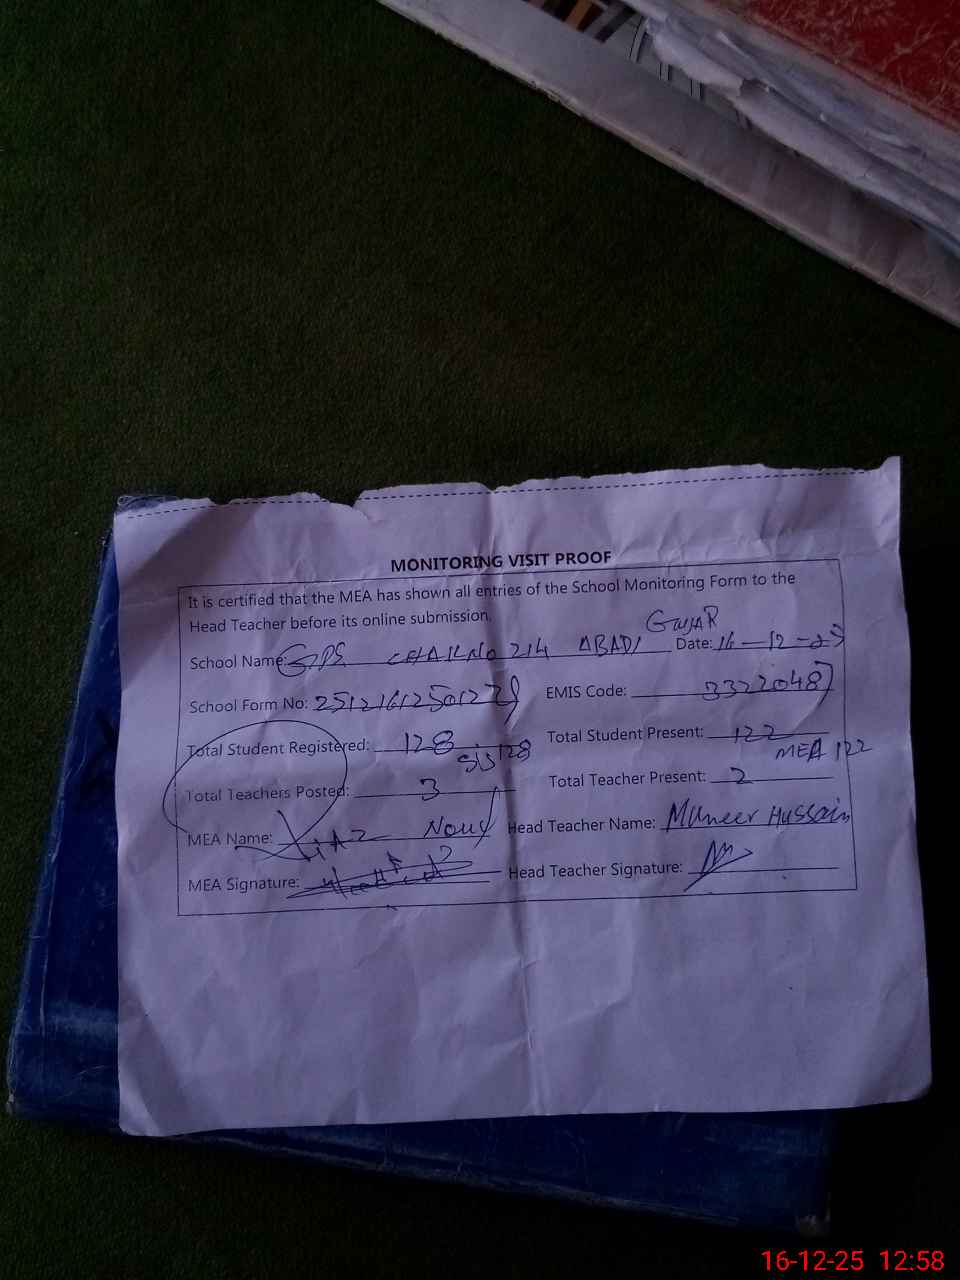 MONITORING VISIT PROOF
It is certified that the MEA has shown all entries of the School Monitoring Form to the
Head Teacher before its online submission.
School Name: GPS CHAK No 214 ABADI GUJAR Date: 16-12-25
School Form No: EMIS Code: 33220487
Total Student Registered: 128 SIS 128 Total Student Present: 122 MEA 122
Total Teachers Posted: 3 Total Teacher Present: 2
MEA Name: Head Teacher Name: Muneer Hussain
MEA Signature: Head Teacher Signature:
16-12-25 12:58